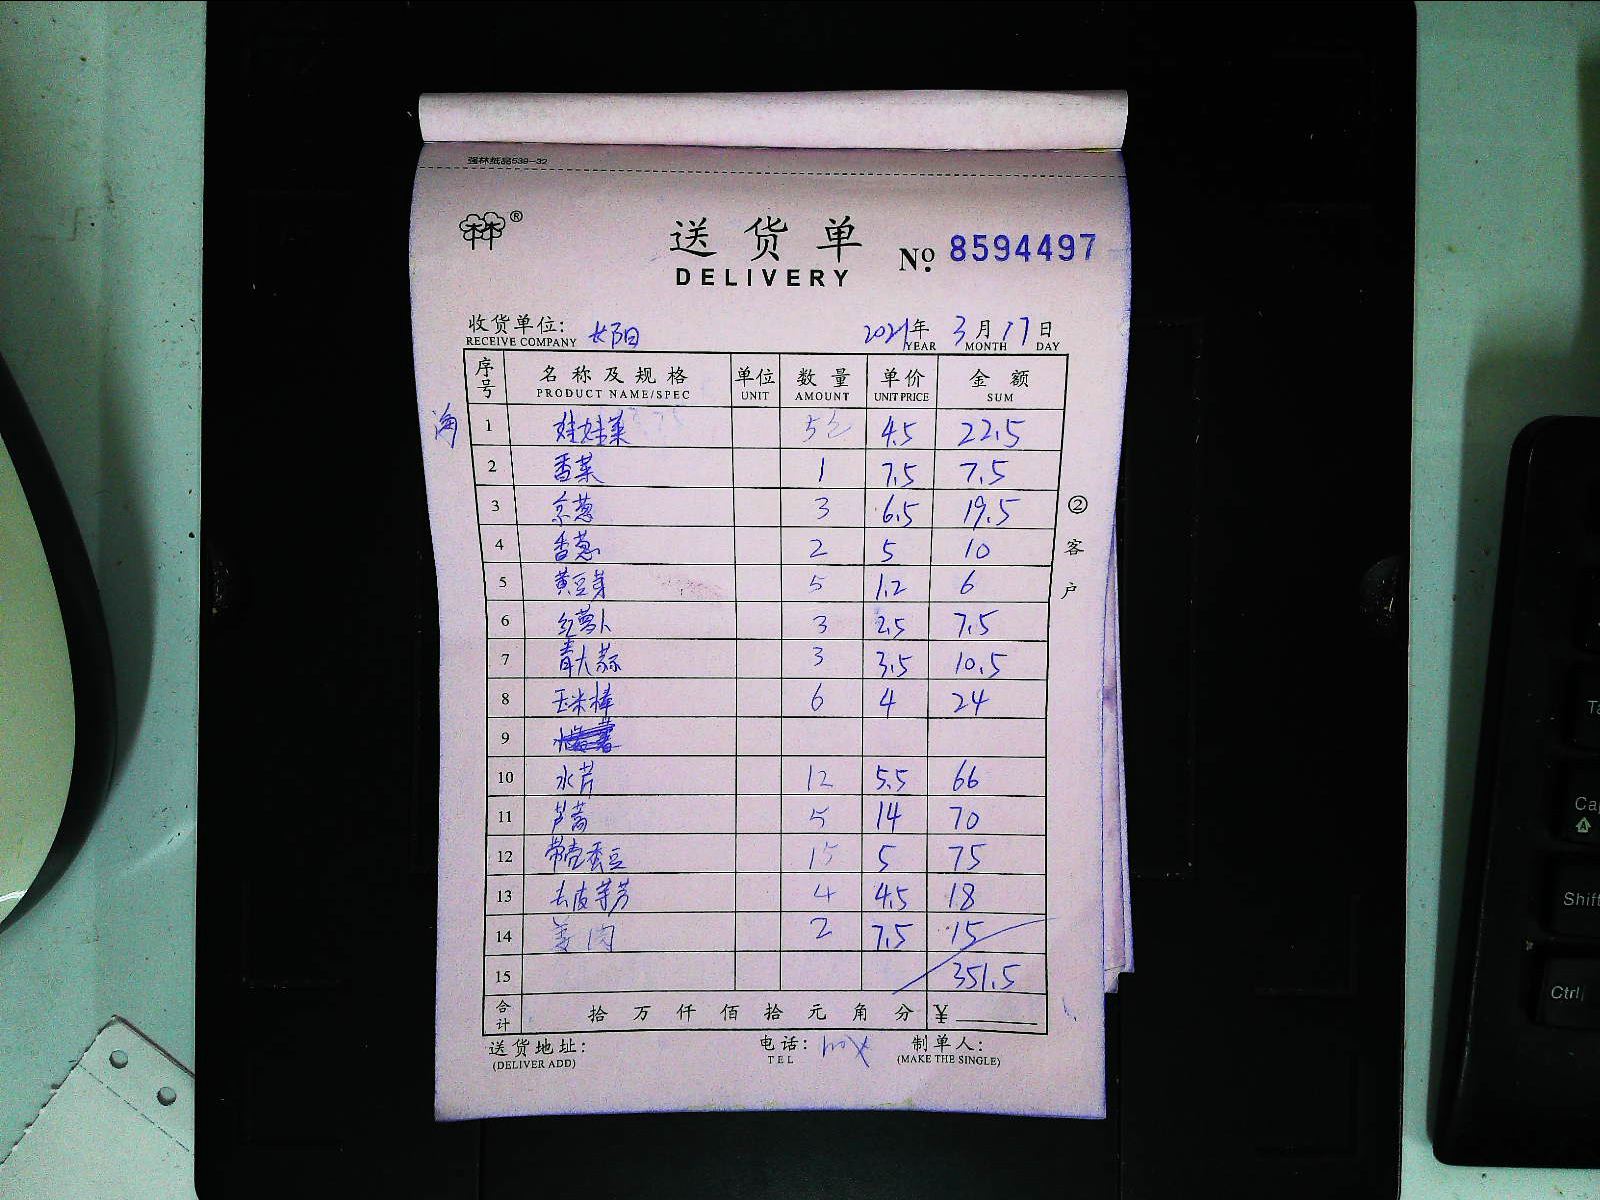 强林纸品539-32
®
送货单
DELIVERY
No. 8594497
收货单位: 长阳 2021年 3月 17日
RECEIVE COMPANY YEAR MONTH DAY
序号 名称及规格 单位 数量 单价 金额
PRODUCT NAME/SPEC UNIT AMOUNT UNIT PRICE SUM
1 娃娃菜 5 4.5 22.5
2 香菜 1 7.5 7.5
3 京葱 3 6.5 19.5
4 香葱 2 5 10
5 黄豆芽 5 1.2 6
6 红萝卜 3 2.5 7.5
7 青大蒜 3 3.5 10.5
8 玉米棒 6 4 24
9
10 水芹 12 5.5 66
11 芦蒿 5 14 70
12 带壳蚕豆 15 5 75
13 去皮芋艿 4 4.5 18
14 姜肉 2 7.5 15
15 351.5
合计 拾 万 仟 佰 拾 元 角 分 ¥
送货地址: 电话: 制单人:
(DELIVER ADD) TEL (MAKE THE SINGLE)
②客户
Shift
Ctrl